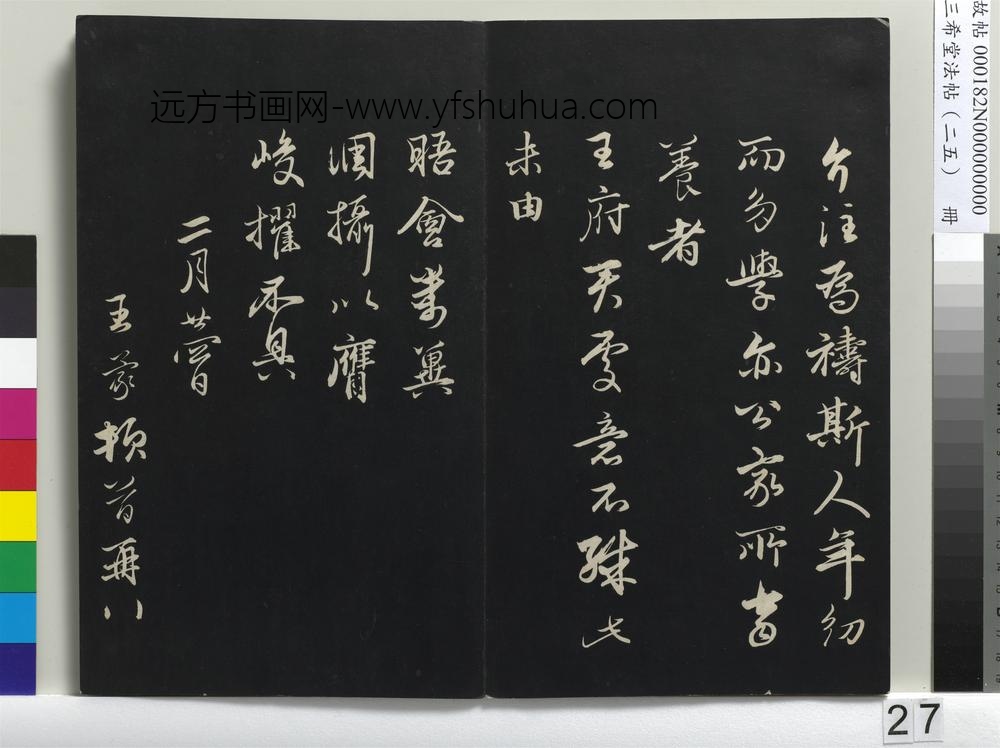 介注為禱斯人年幼
而多學亦公家所當
養者
王府天處意不殊此
未由
晤會萬冀
調攝以膺
峻擢不具
二月廿四日
王蒙頓首再
远方书画网-www.yfshuhua.com
故帖 000182N000000000000
三希堂法帖(二五) 冊
27